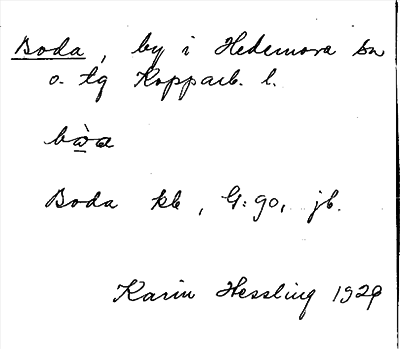 Boda, by i Hedemora sn
o. tg Kopparb. l.
bὼa
Boda kb, G:go, jb.
Karin Hessling 1929